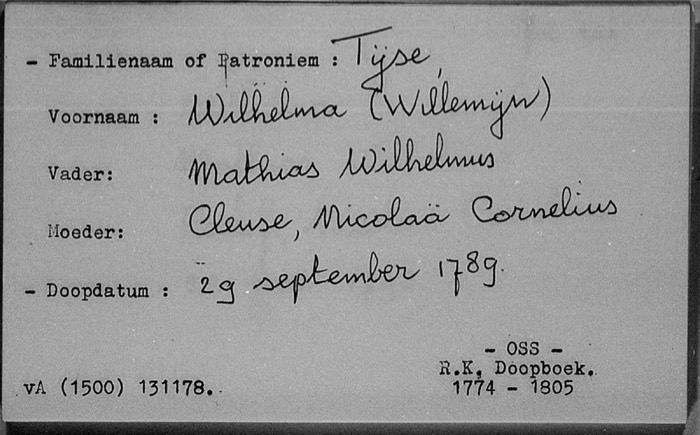 - Familienaam of Patroniem : Tijse,
Voornaam : Wilhelma (Willemijn)
Vader: Mathias Wilhelmus
Moeder: Cleuse, Nicolaä Cornelius
- Doopdatum : 29 september 1789.
- OSS -
R.K. Doopboek.
vA (1500) 131178. 1774 - 1805